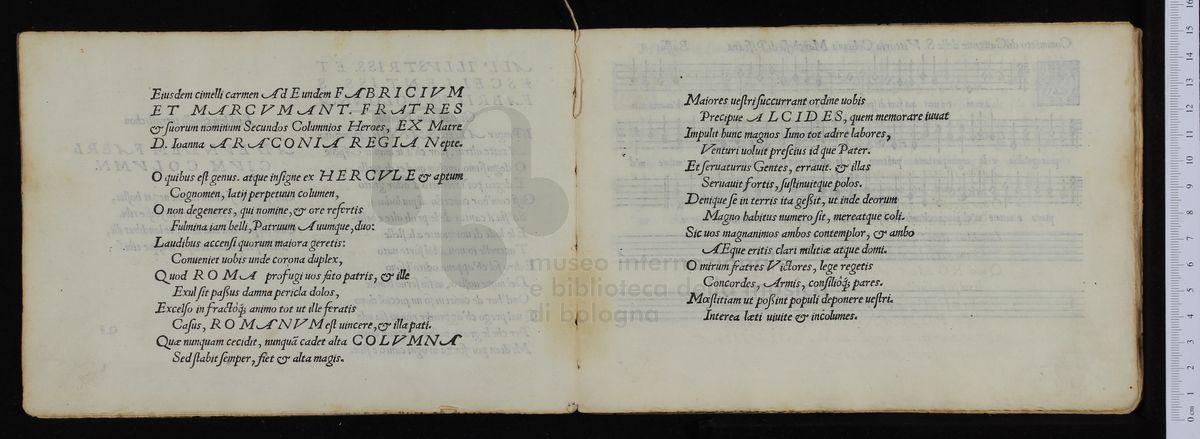 Eiusdem cinelli carmen Ad Eundem FABRICIVM
ET MARCVM ANT. FRATRES
& suorum nominum Secundos Columnios Heroes, EX Matre
D. Ioanna ARACONIA REGIA Nepte.
O quibus est genus. atque insigne ex HERCVLE & aptum
Cognomen, latij perpetuum columen,
O non degeneres, qui nomine, & ore refertis
Fulmina iam belli, Patruum Auumque, duo:
Laudibus accensi quorum maiora geretis:
Conueniet uobis unde corona duplex,
Quod ROMA profugi uos fato patris, & ille
Exul sit passus damna pericla dolos,
Excelso infractóq; animo tot ut ille feratis
Casus, ROMANVM est uincere, & illa pati.
Quæ nunquam cecidit, nunquã cadet alta COLVMNA
Sed stabit semper, fiet & alta magis.
Maiores uestri succurrant ordine uobis
Precipue ALCIDES, quem memorare iuuat
Impulit hunc magnos Iuno tot adire labores,
Venturi uoluit prescius id que Pater.
Et seruaturus Gentes, errauit. & illas
Seruauit fortis, sustinuitque polos.
Denique se in terris ita gessit, ut inde deorum
Magno habitus numero sit, mereatque coli.
Sic uos magnanimos ambos contemplor, & ambo
AEque eritis clari militiæ atque domi.
O mirum fratres Victores, lege regetis
Concordes, Armis, consilióq; pares.
Mæstitiam ut possint populi deponere uestri.
Interea læti uiuite & incolumes.
museo internazionale
e biblioteca della musica
di bologna